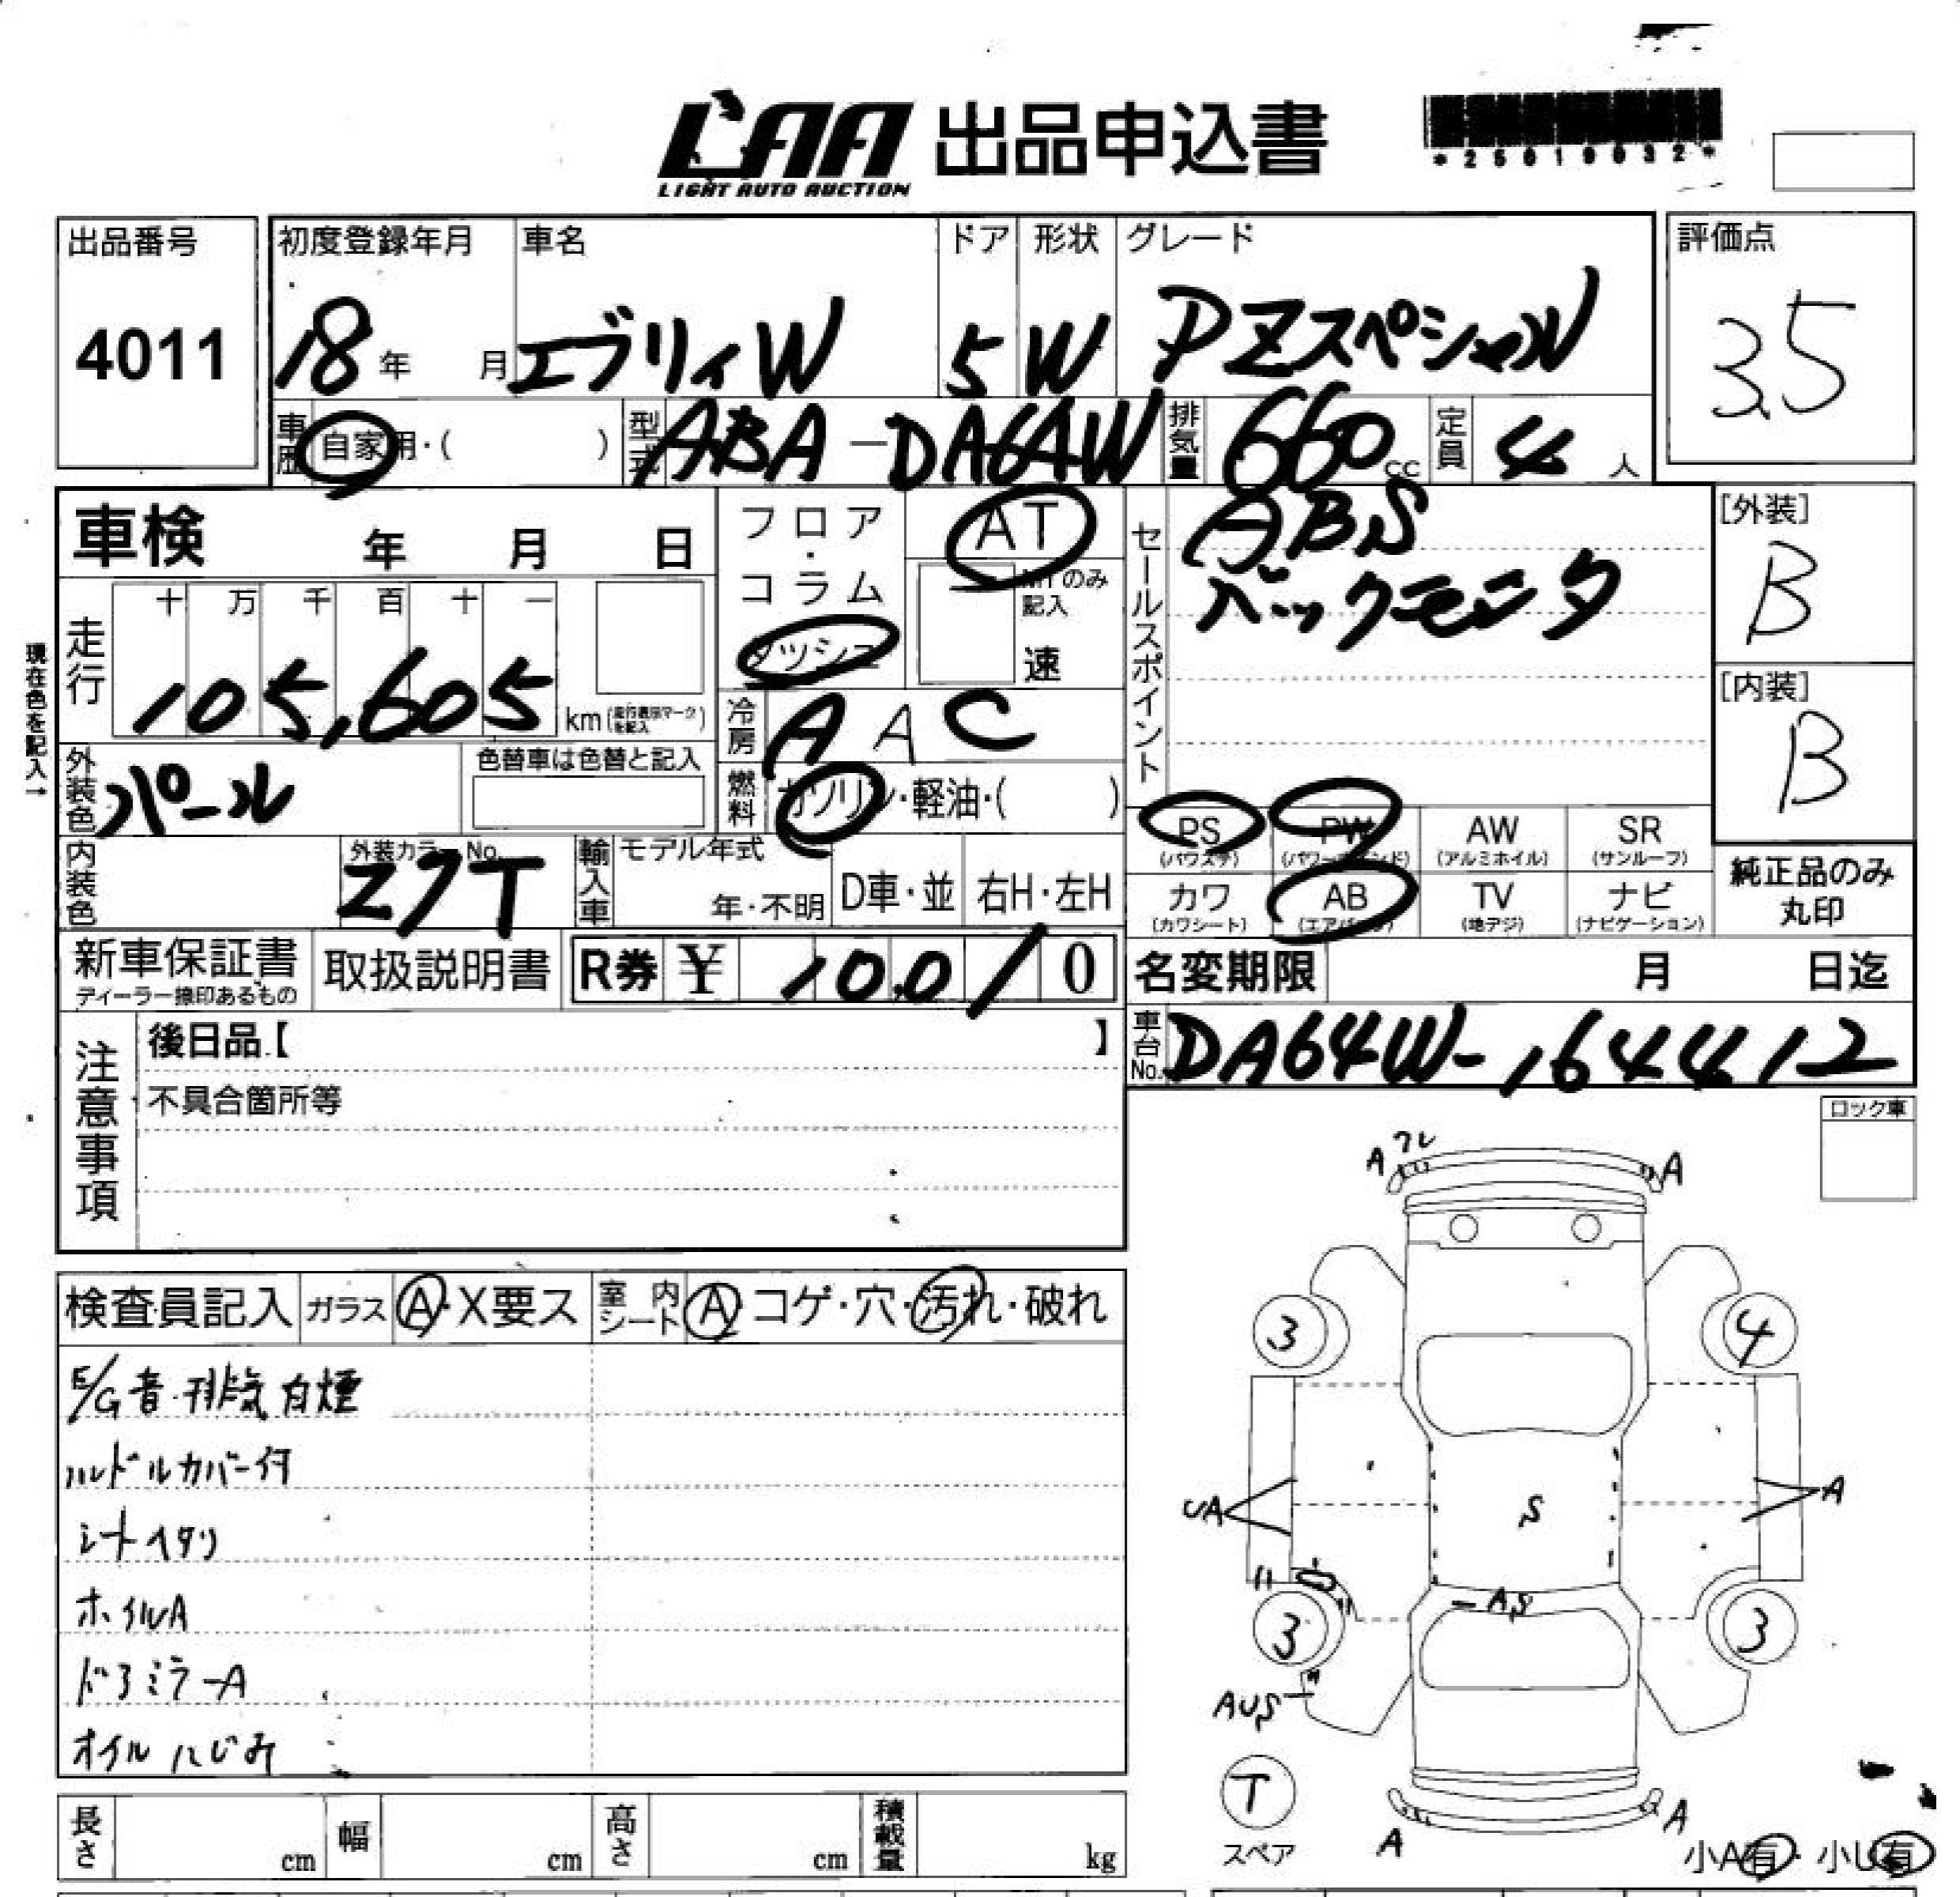 LAA 出品申込書
LIGHT AUTO AUCTION
*25019032*
出品番号
4011
初度登録年月
18年 月
車名
エブリィW
ドア
5
形状
W
グレード
PZスペシャル
評価点
3.5
車歴
自家用・( )
型式
ABA-DA64W
排気量
660cc
定員
4人
車検 年 月 日
フロア・コラム
ダッシュ
AT
MTのみ記入
速
セールスポイント
ABS
バックモニタ
[外装]
B
[内装]
B
現在色を記入→
走行
十 万 千 百 十 一
105,605 km
冷房
A A C
外装色
パール
色替車は色替と記入
燃料
ガソリン・軽油・( )
PS
(パワステ)
PW
(パワーウインド)
AW
(アルミホイル)
SR
(サンルーフ)
カワ
(カワシート)
AB
(エアバッグ)
TV
(地デジ)
ナビ
(ナビゲーション)
純正品のみ
丸印
内装色
外装カラーNo.
Z7T
輸入車
モデル年式
年・不明
D車・並
右H・左H
新車保証書
ディーラー捺印あるもの
取扱説明書
R券 ¥ 10,0/0
名変期限 月 日迄
車台No.
DA64W-164412
注意事項
後日品【 】
不具合箇所等
ロック車
検査員記入
ガラス A・X要ス
室内シート A コゲ・穴・汚れ・破れ
E/G音・排気白煙
ハンドルカバー付
シートヘタリ
ホイルA
ドアミラーA
オイルにじみ
A フレ
A
3
4
UA
S
A
AS
3
3
AUS
T
スペア
A
A
小A有・小U有
長さ cm
幅 cm
高さ cm
積載量 kg